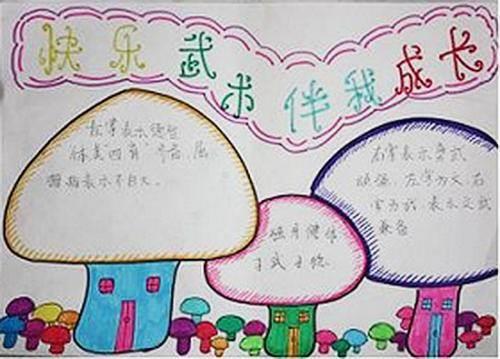 快乐武术伴我成长
左掌表示德智
体美“四育”齐备，屈
拇指表示不自大。
身健体
右掌表示勇武
顽强，左掌为文，右
掌为武，表示文武
兼备